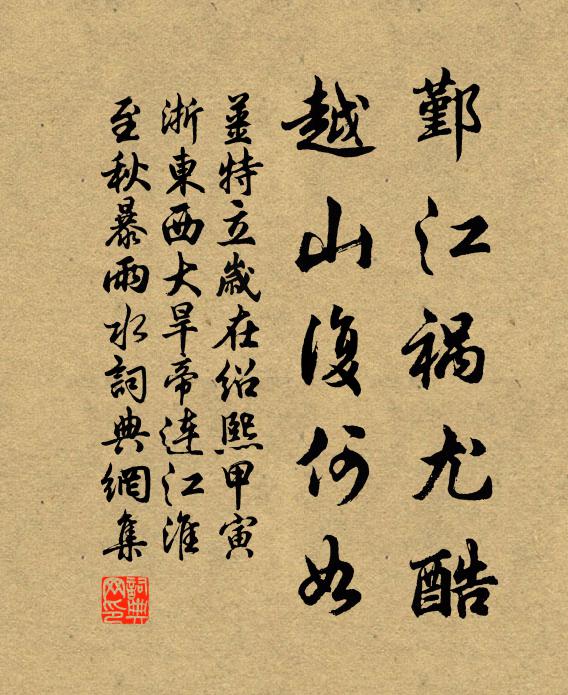 鄞江祸尤酷
越山復何如
薑特立歲在紹熙甲寅
浙東西大旱帝連江淮
至秋暴雨水詞典網集
詞典网印